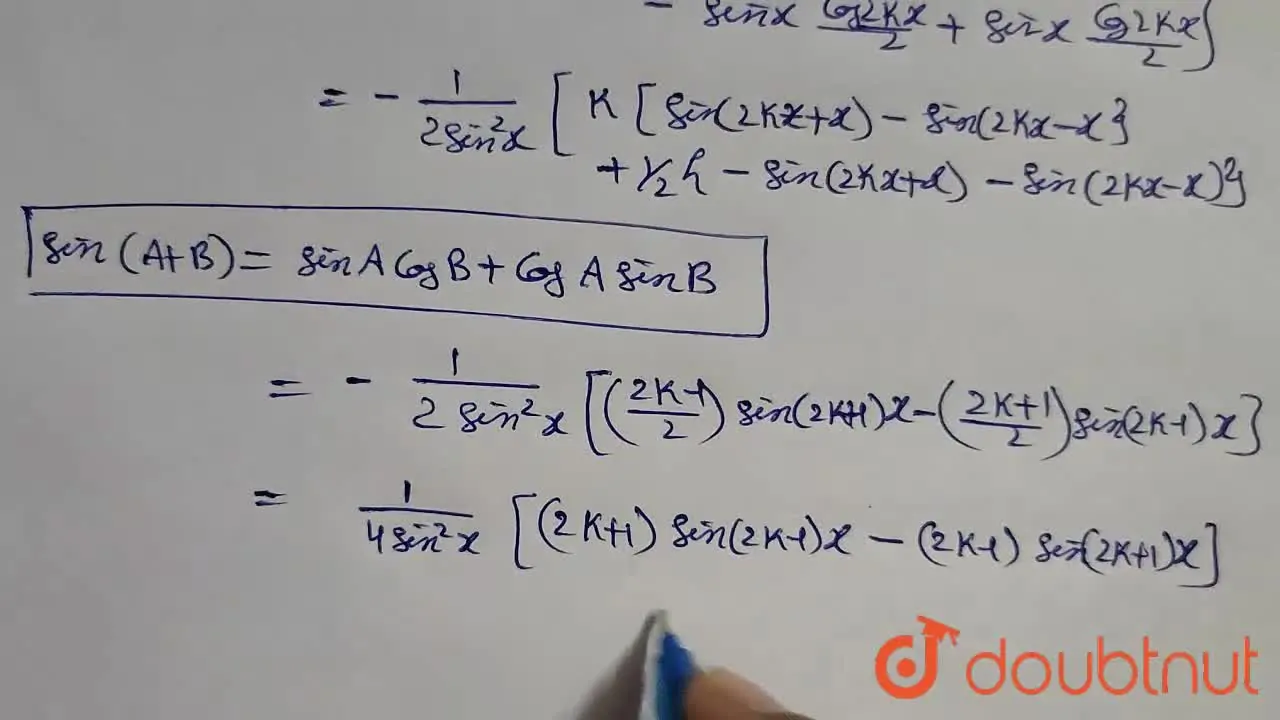 - sinx cos2Kx/2 + sinx cos2Kx/2}
= - 1/2sin²x [ K [sin(2Kx+x) - sin(2Kx-x}
+ 1/2 { - sin(2Kx+x) - sin(2Kx-x)}}
sin(A+B) = sinA cosB + cosA sinB
= - 1/2 sin²x [(2K-1/2) sin(2K+1)x - (2K+1/2) sin(2K-1)x]
= 1/4sin²x [(2K+1) sin(2K-1)x - (2K-1) sin(2K+1)x]
doubtnut